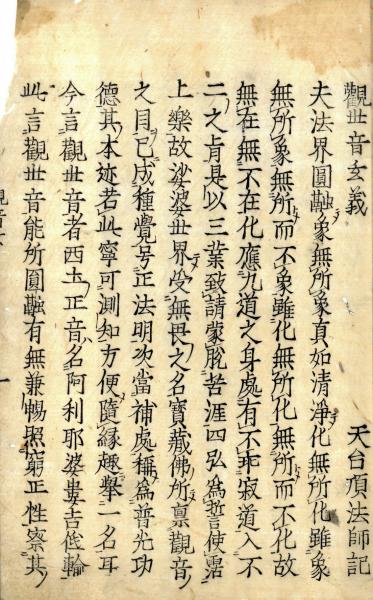 觀世音玄義　天台頂法師記
夫法界圓融象無所象真如清淨化無所化雖象
無所象無所而不象雖化無所化無所而不化故
無在無不在化應九道之身處有不乖寂道入不
二之㫖是以三業致請蒙脫苦涯四弘爲誓使霑
上樂故娑婆世界受無畏之名寶藏佛所禀觀音
之目已成種覺号正法明次當補處稱爲普光功
德其本迹若此寧可測知方便隨緣趣舉一名耳
今言觀世音者西土正音名阿利耶婆婁吉低輸
此言觀世音能所圓融有無兼暢照窮正性察其